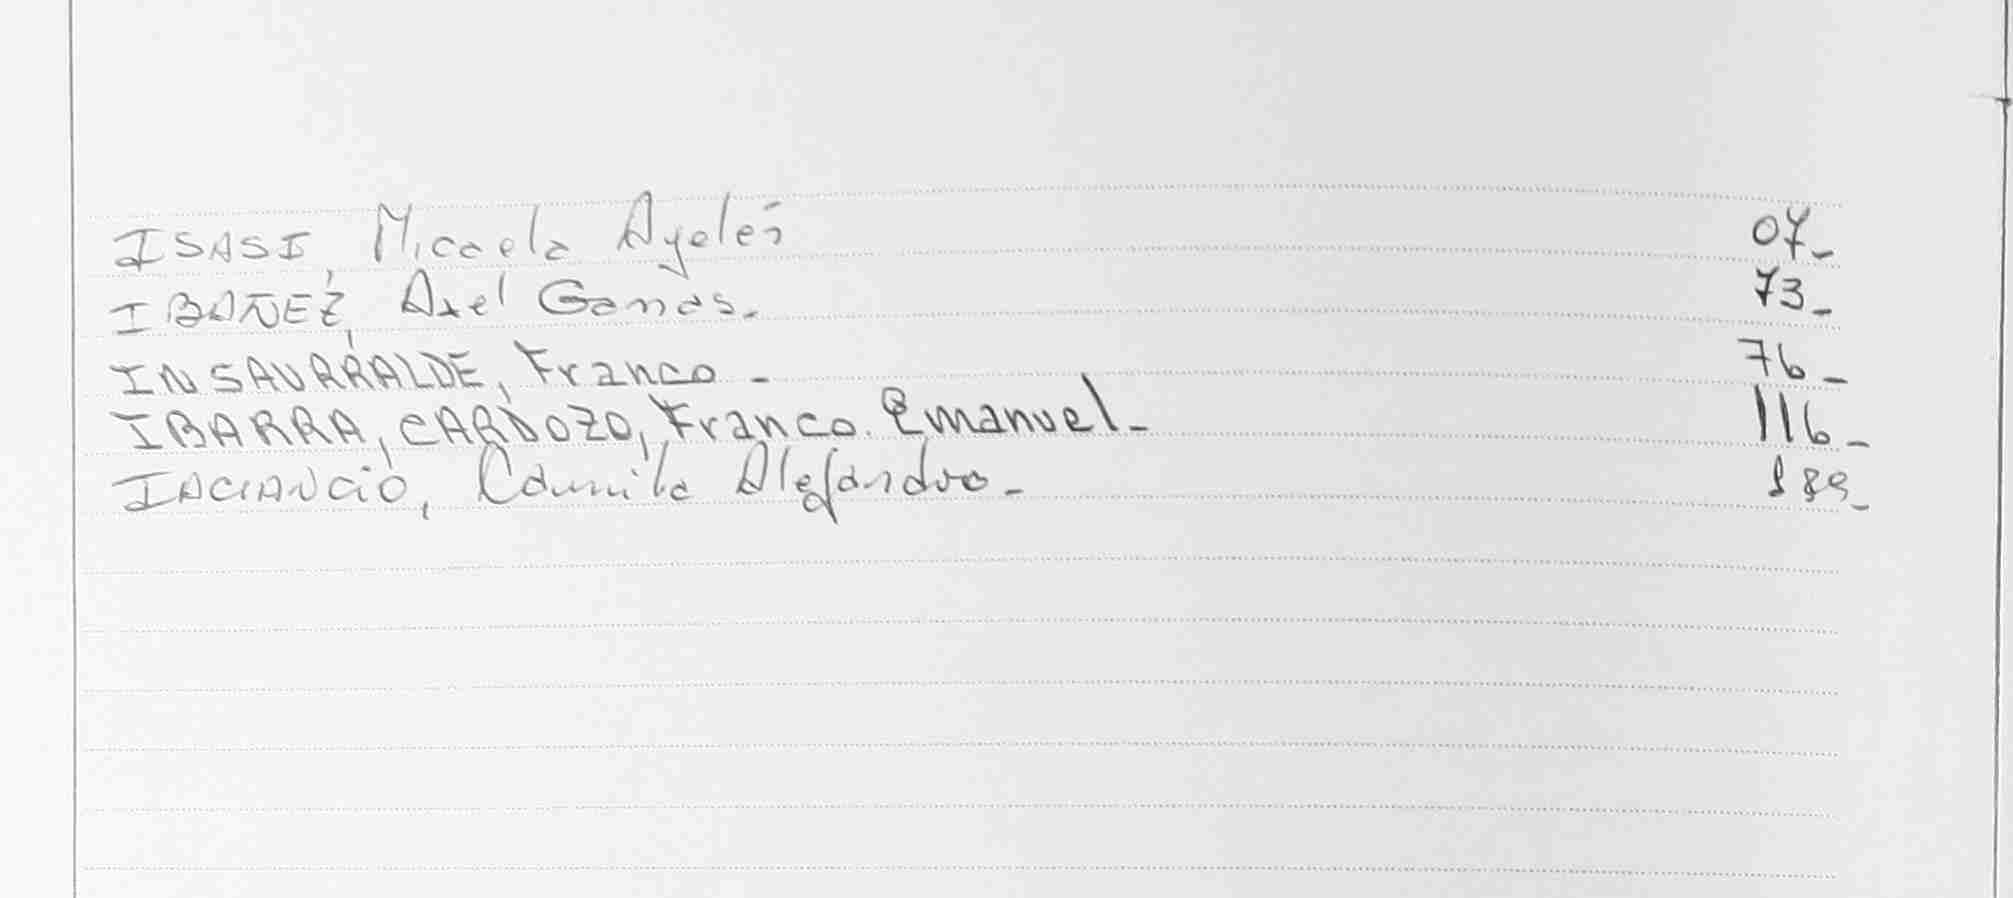 ISASI, Micaela Ayelén 07-
IBAÑEZ, Axel Gomas. 73-
INSAURRALDE, Franco - 76-
IBARRA, CARDOZO, Franco. Emanuel- 116-
IACIANCIO, Camila Alejandra- 189-